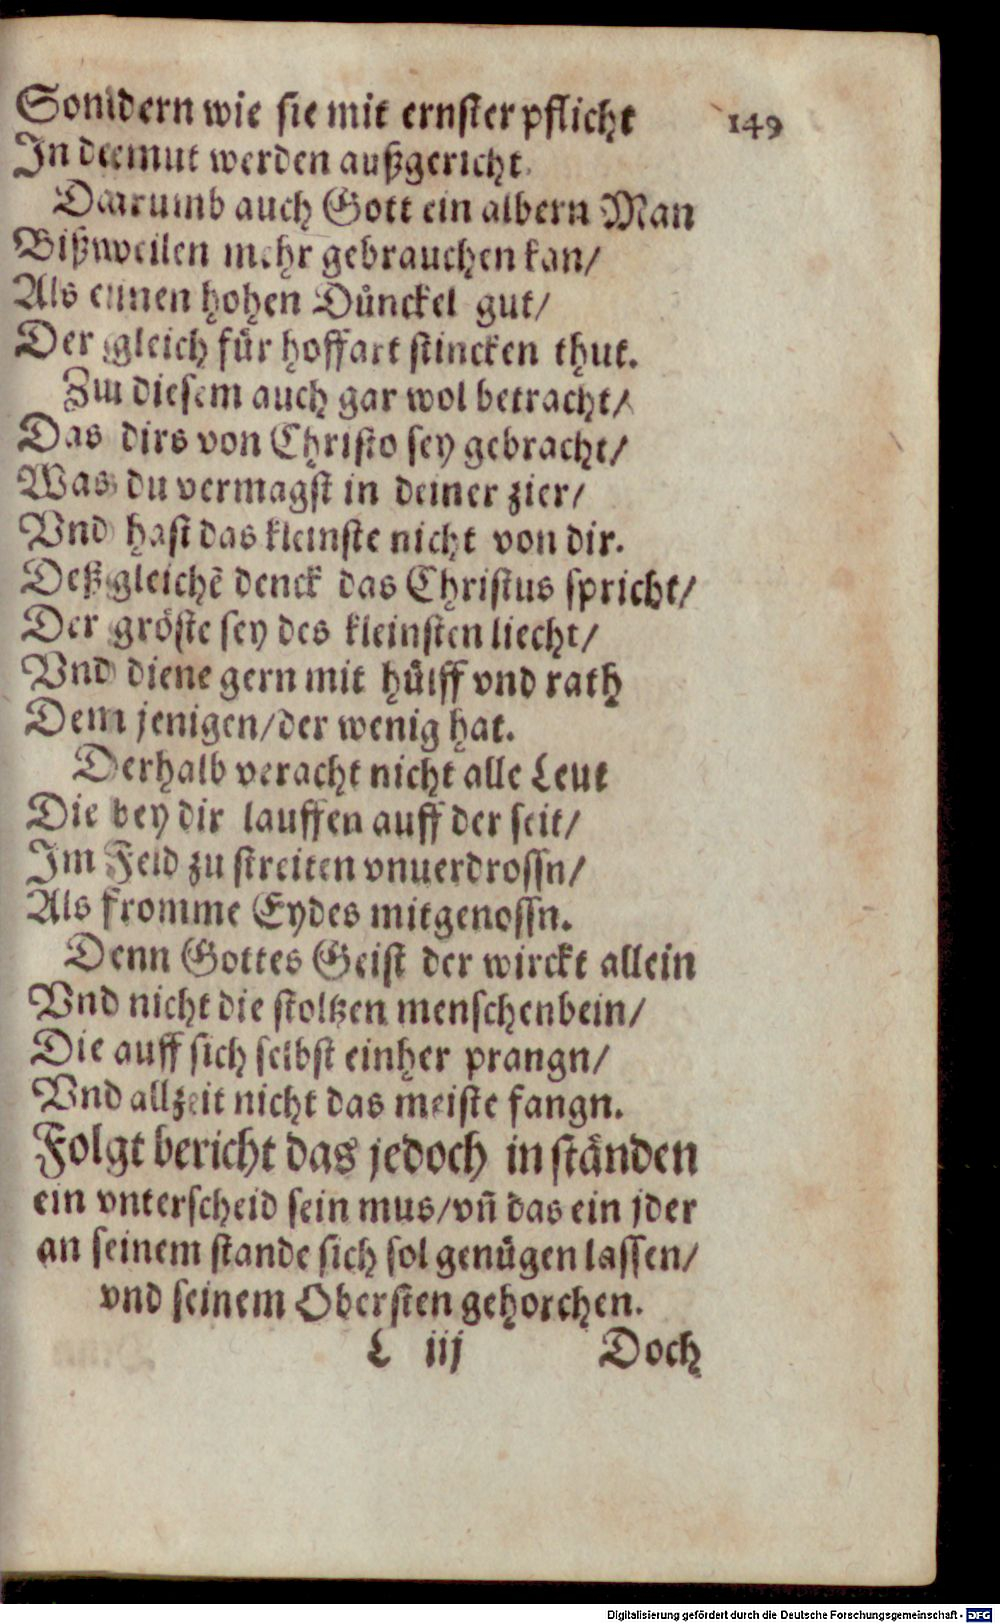 Sonndern wie sie mit ernster pflicht
149
In deemut werden außgericht.
Daarumb auch Gott ein albern Man
Bißnweilen mehr gebrauchen kan/
Als einen hohen Důnckel gut/
Der gleich fůr hoffart stincken thut.
Zu diesem auch gar wol betracht/
Das dirs von Christo sey gebracht/
Was du vermagst in deiner zier/
Vnd hast das kleinste nicht von dir.
Deßgleichẽ denck das Christus spricht/
Der gröste sey des kleinsten liecht/
Vnd diene gern mit hůlff vnd rath
Dem jenigen/der wenig hat.
Derhalb veracht nicht alle Leut
Die bey dir lauffen auff der seit/
Im Feld zu streiten vnuerdrossn/
Als fromme Eydes mitgenossn.
Denn Gottes Geist der wirckt allein
Vnd nicht die stoltzen menschenbein/
Die auff sich selbst einher prangn/
Vnd allzeit nicht das meiste fangn.
Folgt bericht das jedoch in ständen
ein vnterscheid sein mus/vñ das ein jder
an seinem stande sich sol genůgen lassen/
vnd seinem Obersten gehorchen.
L iij Doch
Digitalisierung gefördert durch die Deutsche Forschungsgemeinschaft - DFG